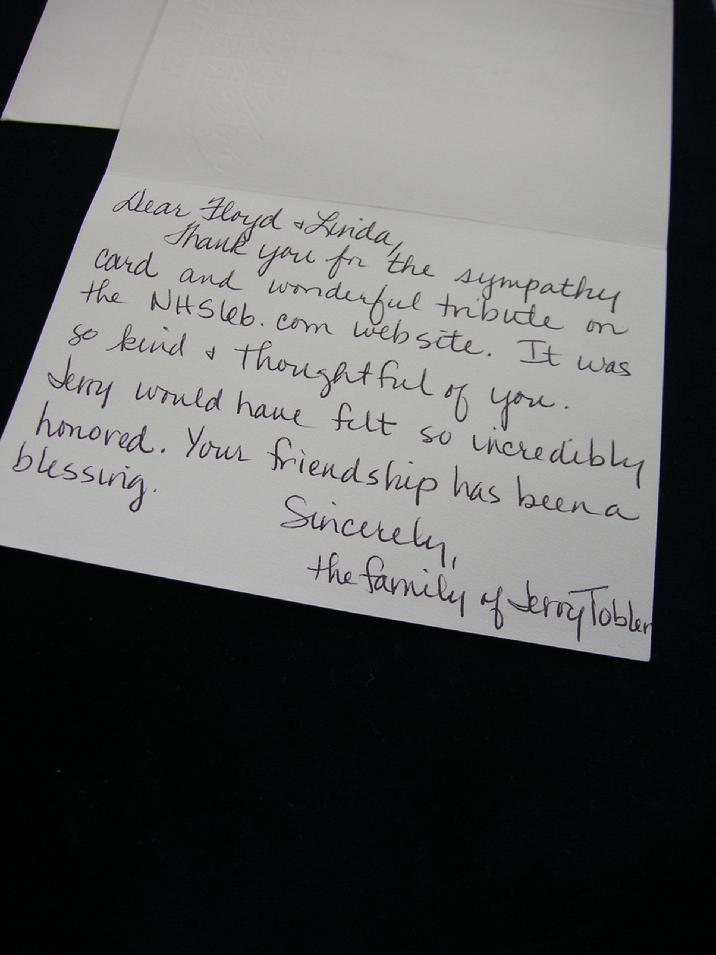 Dear Floyd & Linda,
Thank you for the sympathy
card and wonderful tribute on
the NHSleb.com website. It was
so kind & thoughtful of you.
Jerry would have felt so incredibly
honored. Your friendship has been a
blessing.
Sincerely,
the family of Jerry Tobler